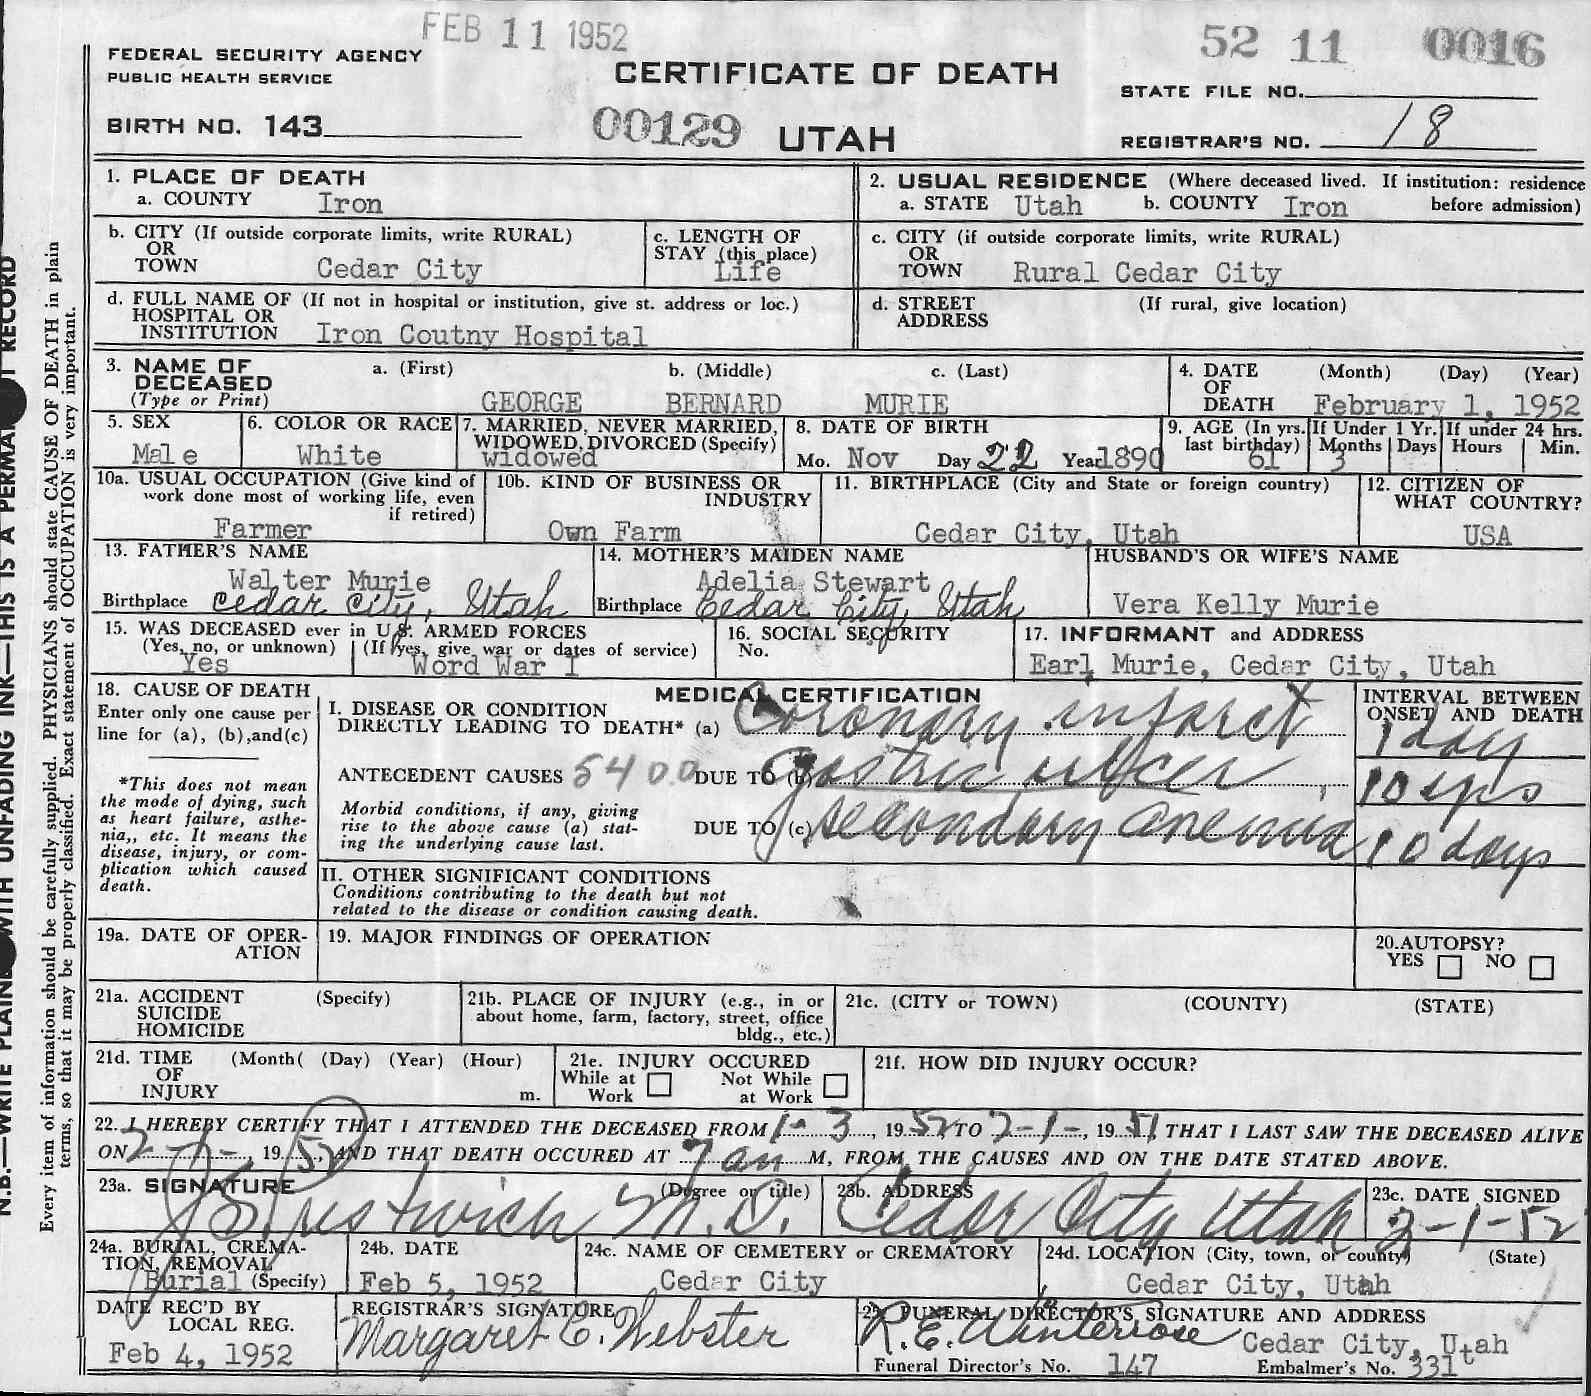 FEB 11 1952
52 11 0016
FEDERAL SECURITY AGENCY
PUBLIC HEALTH SERVICE
CERTIFICATE OF DEATH
STATE FILE NO.
BIRTH NO. 143
00129 UTAH
REGISTRAR'S NO. 18
1. PLACE OF DEATH
a. COUNTY Iron
2. USUAL RESIDENCE (Where deceased lived. If institution: residence before admission)
a. STATE Utah b. COUNTY Iron
b. CITY (If outside corporate limits, write RURAL)
OR
TOWN Cedar City
c. LENGTH OF
STAY (this place)
Life
c. CITY (if outside corporate limits, write RURAL)
OR
TOWN Rural Cedar City
d. FULL NAME OF (If not in hospital or institution, give st. address or loc.)
HOSPITAL OR
INSTITUTION Iron Coutny Hospital
d. STREET (If rural, give location)
ADDRESS
3. NAME OF a. (First) b. (Middle) c. (Last)
DECEASED
(Type or Print) GEORGE BERNARD MURIE
4. DATE (Month) (Day) (Year)
OF
DEATH February 1, 1952
5. SEX
Male
6. COLOR OR RACE
White
7. MARRIED, NEVER MARRIED,
WIDOWED, DIVORCED (Specify)
widowed
8. DATE OF BIRTH
Mo. Nov Day 22 Year 1890
9. AGE (In yrs. last birthday) 61
If Under 1 Yr. Months 3 Days
If under 24 hrs. Hours Min.
10a. USUAL OCCUPATION (Give kind of
work done most of working life, even
if retired)
Farmer
10b. KIND OF BUSINESS OR
INDUSTRY
Own Farm
11. BIRTHPLACE (City and State or foreign country)
Cedar City, Utah
12. CITIZEN OF
WHAT COUNTRY?
USA
13. FATHER'S NAME
Walter Murie
Birthplace Cedar City, Utah
14. MOTHER'S MAIDEN NAME
Adelia Stewart
Birthplace Cedar City, Utah
HUSBAND'S OR WIFE'S NAME
Vera Kelly Murie
15. WAS DECEASED ever in U.S. ARMED FORCES
(Yes, no, or unknown) (If yes, give war or dates of service)
Yes Word War I
16. SOCIAL SECURITY
No.
17. INFORMANT and ADDRESS
Earl Murie, Cedar City, Utah
18. CAUSE OF DEATH
Enter only one cause per
line for (a), (b),and(c)
*This does not mean
the mode of dying, such
as heart failure, asthe-
nia,, etc. It means the
disease, injury, or com-
plication which caused
death.
MEDICAL CERTIFICATION
I. DISEASE OR CONDITION
DIRECTLY LEADING TO DEATH* (a) Coronary infarct
ANTECEDENT CAUSES 5400 DUE TO (b) gastric ulcer
Morbid conditions, if any, giving
rise to the above cause (a) stat-
ing the underlying cause last.
DUE TO (c) secondary anemia
INTERVAL BETWEEN
ONSET AND DEATH
1 day
10 yrs
10 days
II. OTHER SIGNIFICANT CONDITIONS
Conditions contributing to the death but not
related to the disease or condition causing death.
19a. DATE OF OPER-
ATION
19. MAJOR FINDINGS OF OPERATION
20. AUTOPSY?
YES NO
21a. ACCIDENT (Specify)
SUICIDE
HOMICIDE
21b. PLACE OF INJURY (e.g., in or
about home, farm, factory, street, office
bldg., etc.)
21c. (CITY or TOWN) (COUNTY) (STATE)
21d. TIME (Month( (Day) (Year) (Hour)
OF
INJURY m.
21e. INJURY OCCURED
While at Work Not While at Work
21f. HOW DID INJURY OCCUR?
22. I HEREBY CERTIFY THAT I ATTENDED THE DECEASED FROM 1-3, 1952, TO 2-1-, 1951, THAT I LAST SAW THE DECEASED ALIVE
ON 2-1-, 1952, AND THAT DEATH OCCURED AT 7 am M, FROM THE CAUSES AND ON THE DATE STATED ABOVE.
23a. SIGNATURE (Degree or title)
Prestwich M.D.
23b. ADDRESS
Cedar City Utah
23c. DATE SIGNED
2-1-52
24a. BURIAL, CREMA-
TION, REMOVAL
Burial (Specify)
24b. DATE
Feb 5, 1952
24c. NAME OF CEMETERY or CREMATORY
Cedar City
24d. LOCATION (City, town, or county) (State)
Cedar City, Utah
DATE REC'D BY
LOCAL REG.
Feb 4, 1952
REGISTRAR'S SIGNATURE
Margaret C. Webster
25. FUNERAL DIRECTOR'S SIGNATURE AND ADDRESS
R.E. Winterrose Cedar City, Utah
Funeral Director's No. 147 Embalmer's No. 331
Every item of information should be carefully supplied. PHYSICIANS should state CAUSE OF DEATH in plain
terms, so that it may be properly classified. Exact statement of OCCUPATION is very important.
N.B.—WRITE PLAIN WITH UNFADING INK—THIS IS A PERMA T RECORD